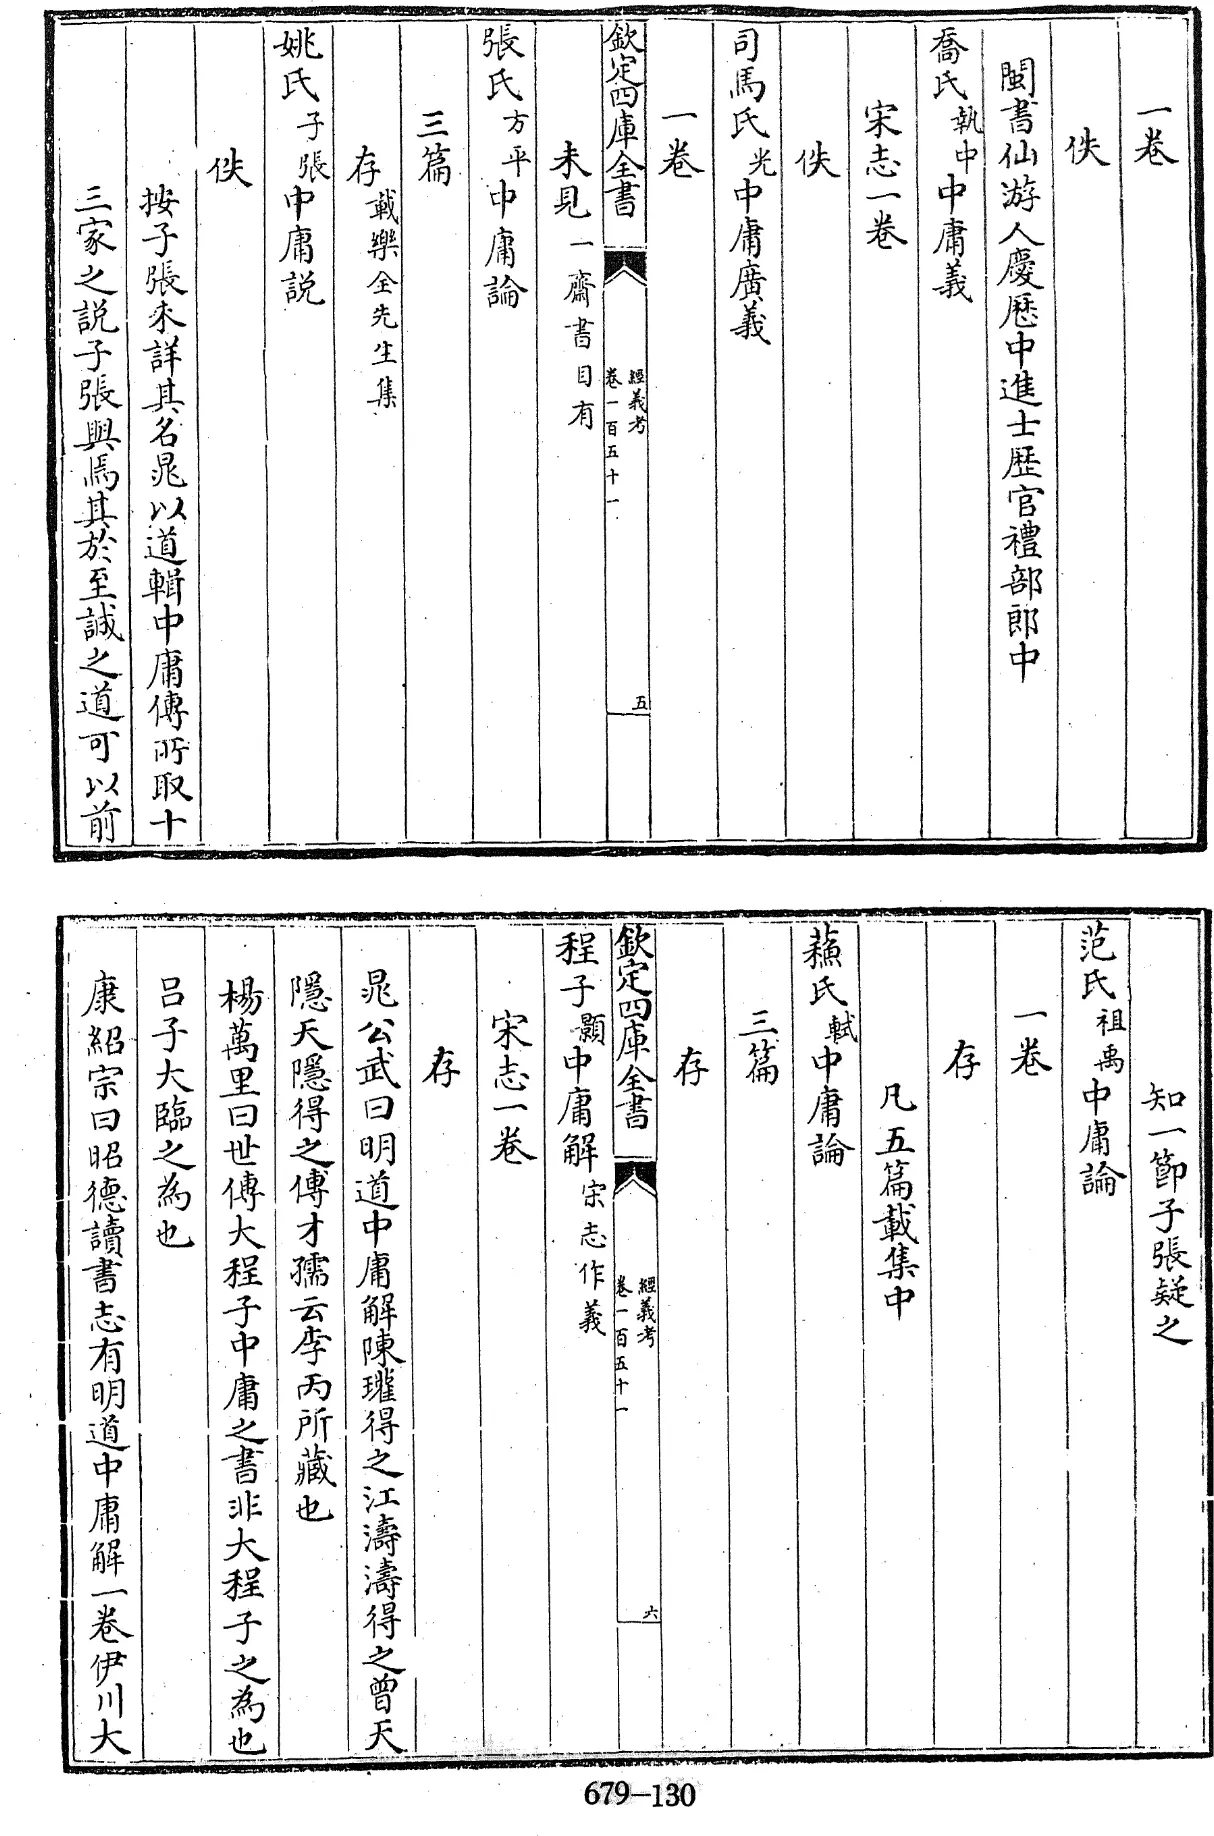 一卷
佚
閩書仙游人慶厯中進士歴官禮部郎中
喬氏執中中庸義
宋志一卷
佚
司馬氏光中庸廣義
一卷
欽定四庫全書
經義考
卷一百五十一
五
未見一齋書目有
張氏方平中庸論
三篇
存載樂全先生集
姚氏子張中庸説
佚
按子張未詳其名晁以道輯中庸傳所取十
三家之説子張與焉其於至誠之道可以前
知一節子張疑之
范氏祖禹中庸論
一卷
存
凡五篇載集中
蘓氏軾中庸論
三篇
存
欽定四庫全書
經義考
卷一百五十一
六
程子顥中庸解宋志作義
宋志一卷
存
晁公武曰明道中庸解陳瓘得之江濤濤得之曾天
隱天隱得之傅才孺云李丙所藏也
楊萬里曰世傳大程子中庸之書非大程子之為也
呂子大臨之為也
康紹宗曰昭德讀書志有明道中庸解一卷伊川大
679-130